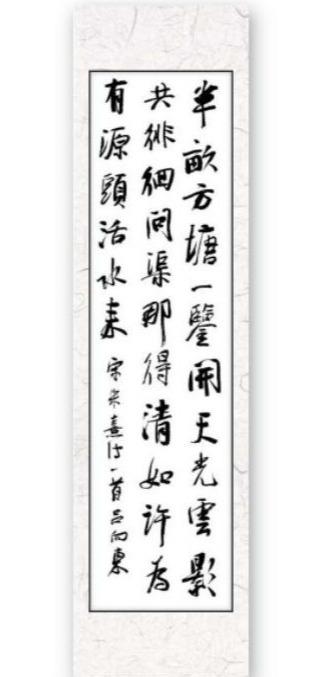 半畝方塘一鑒開天光雲影
共徘徊問渠那得清如許為
有源頭活水來 宋朱熹诗一首吕向東